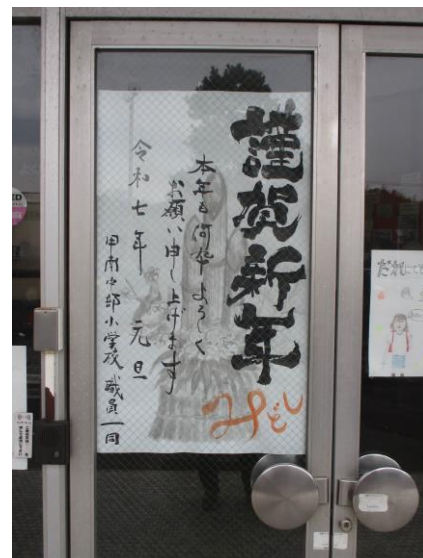 謹賀新年
本年も何卒よろしく
お願い申し上げます
令和七年 元旦
甲南中部小学校 職員一同
みどし